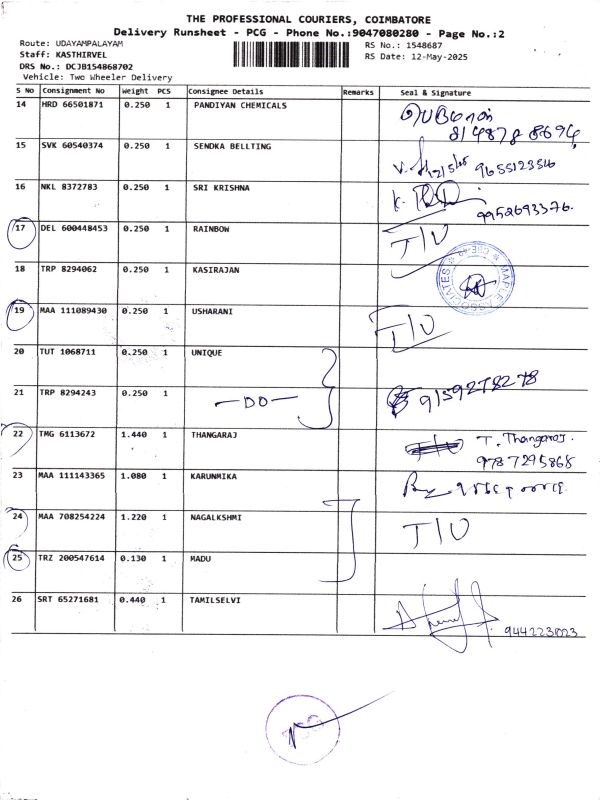 THE PROFESSIONAL COURIERS, COIMBATORE
Delivery Runsheet - PCG - Phone No.:9047080280 - Page No.:2
Route: UDAYAMPALAYAM
RS No.: 1548687
Staff: KASTHIRVEL
RS Date: 12-May-2025
DRS No.: DCJB154868702
Vehicle: Two Wheeler Delivery
S No Consignment No Weight PCS Consignee Details Remarks Seal & Signature
14 HRD 66501871 0.250 1 PANDIYAN CHEMICALS
15 SVK 60540374 0.250 1 SENDKA BELLTING 12/5/25 9655123516
16 NKL 8372783 0.250 1 SRI KRISHNA 9952693376.
17 DEL 600448453 0.250 1 RAINBOW T/U
18 TRP 8294062 0.250 1 KASIRAJAN MAPLE ASSOCIATES
19 MAA 111089430 0.250 1 USHARANI T/U
20 TUT 1068711 0.250 1 UNIQUE
21 TRP 8294243 0.250 1 -DO- 9159278278
22 TMG 6113672 1.440 1 THANGARAJ T. Thangaraj.
9787295868
23 MAA 111143365 1.080 1 KARUNMIKA
24 MAA 708254224 1.220 1 NAGALKSHMI T/U
25 TRZ 200547614 0.130 1 MADU
26 SRT 65271681 0.440 1 TAMILSELVI 9442231023